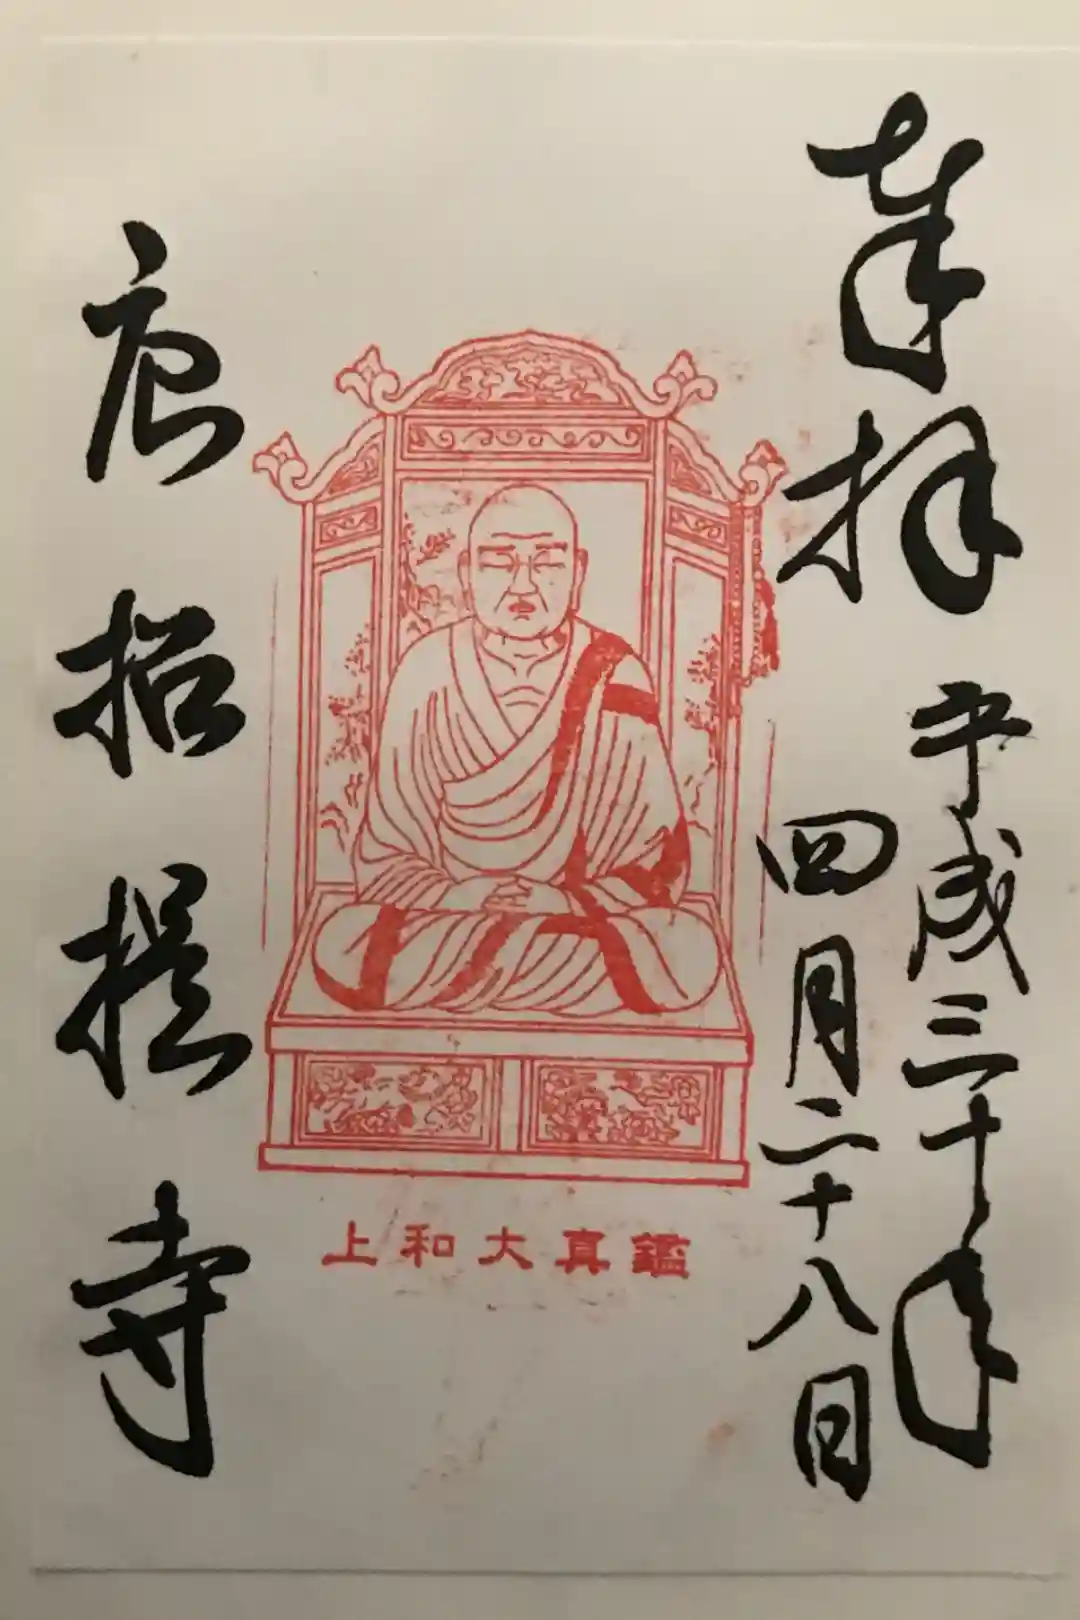 奉拝
平成三十年
四月二十八日
上和大真鑑
唐招提寺